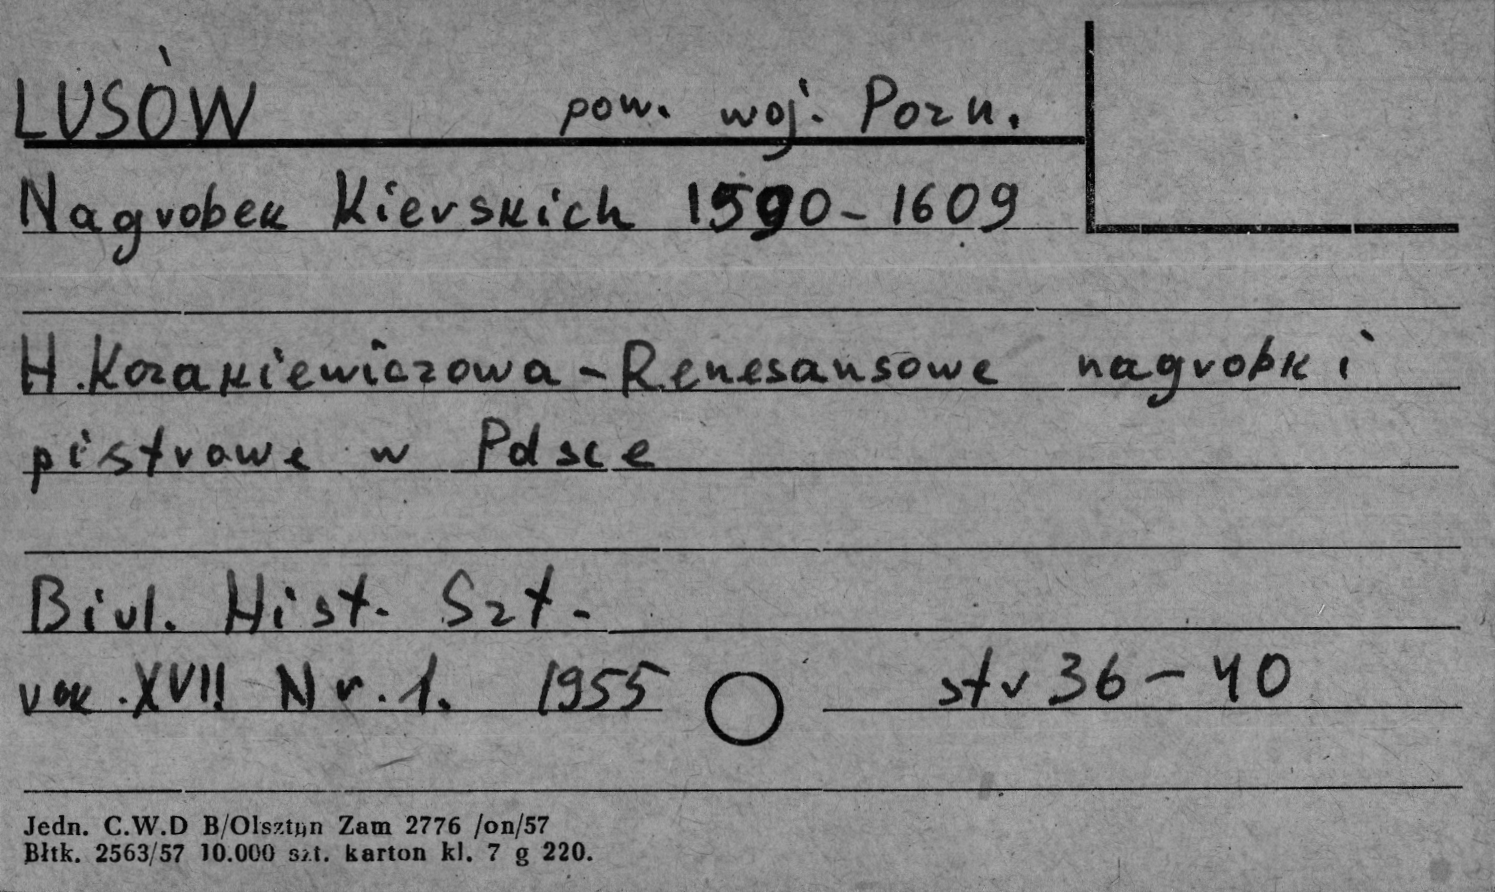 LUSÓW pow. woj. Pozn.
Nagrobek Kierskich 1590-1609
H. Kozakiewiczowa - Renesansowe nagrobki
piętrowe w Polsce
Biul. Hist. Szt.
rok. XVII Nr. 1. 1955 str 36-40
Jedn. C.W.D B/Olsztyn Zam 2776 /on/57
Błtk. 2563/57 10.000 szt. karton kl. 7 g 220.